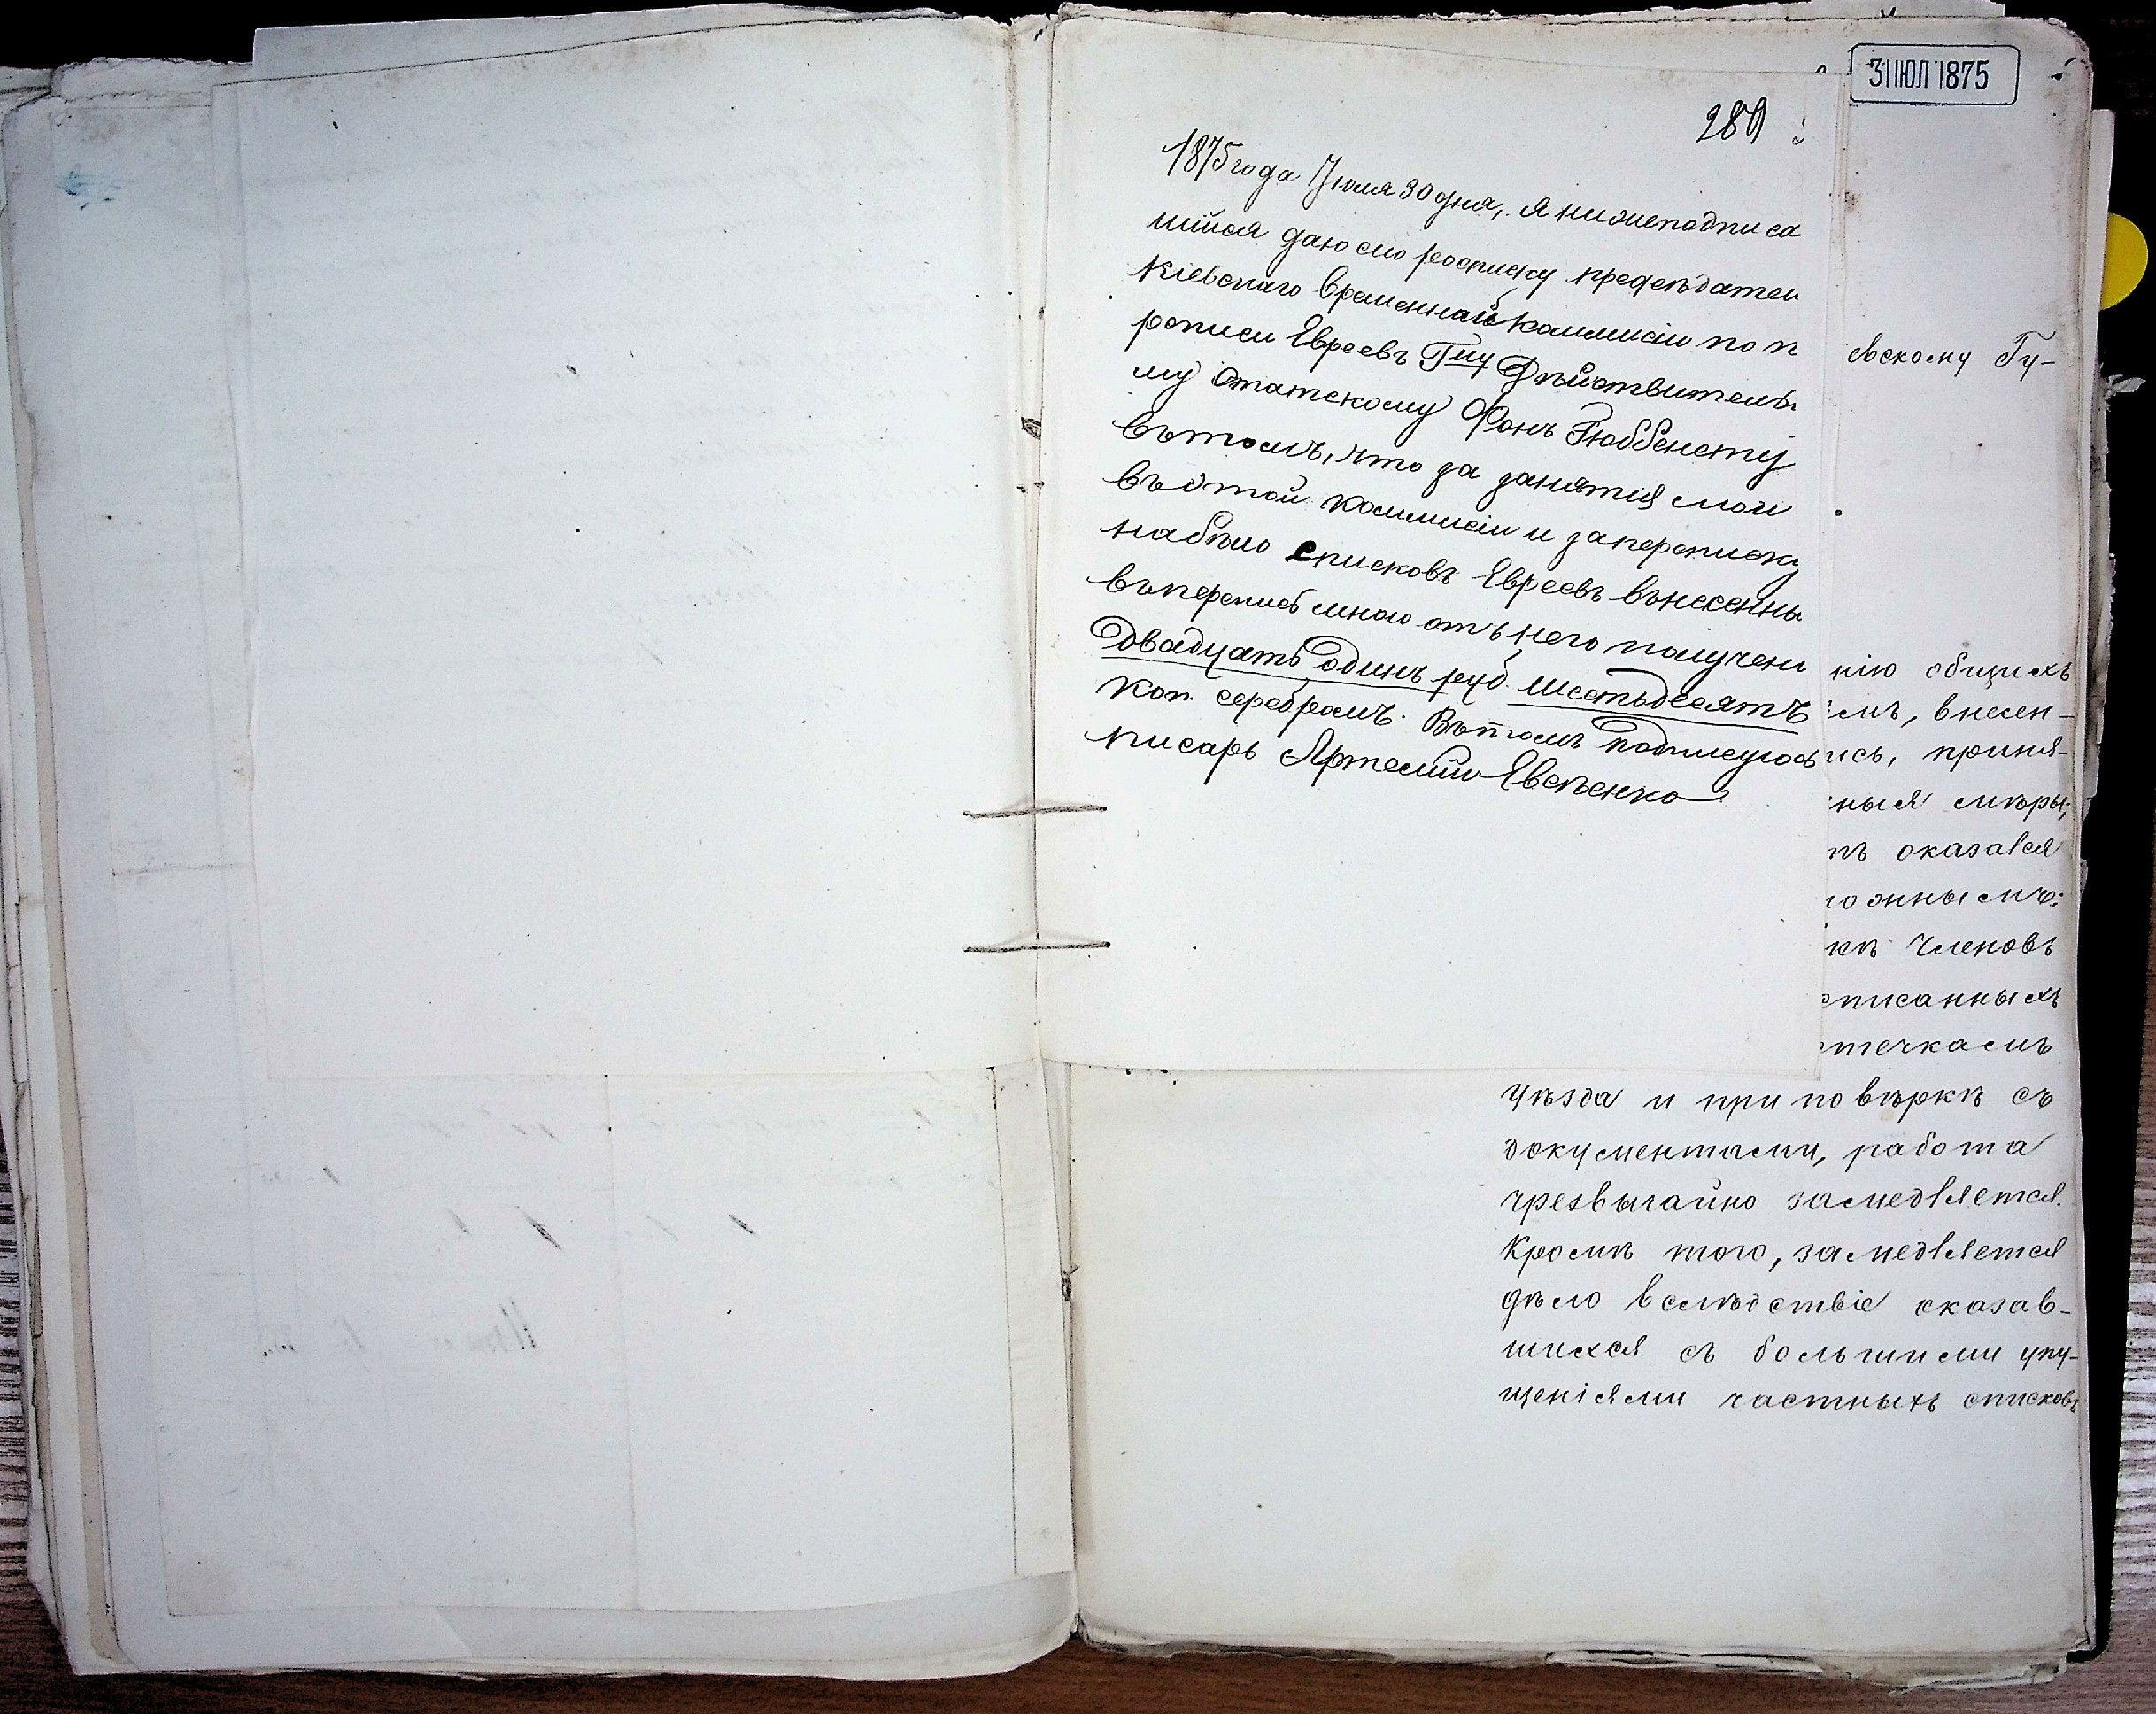 31 ІЮЛ 1875
289
1875 года Іюля 30 дня, я нижеподписа
шійся даю сію росписку председател
Кіевскаго временной Коммисіи по п
рописи Евреевъ Гну Действитель
му Статскому Фонъ Гюббенету
въ томъ, что за занятія мои
въ этой Коммисіи и за переписку
на бѣло списковъ Евреевъ вънесенны
въ перепись мною отъ него получено
двадцать одинъ руб. шестьдесятъ
коп. серебромъ. Въ томъ подписуюсь
писарь Артемий Евсѣенко
евскому Гу-
нію общихъ
мъ, внесен-
ись, приня-
ныя мѣры;
тъ оказался
ожнымъ:
кѣ членовъ
писанныхъ
течкамъ
уѣзда и при повѣркѣ съ
документами, работа
чрезвычайно замедляется.
Кромѣ того, замедляется
дѣло вслѣдствіе оказав-
шихся съ большими упу-
щеніями частныхъ списковъ